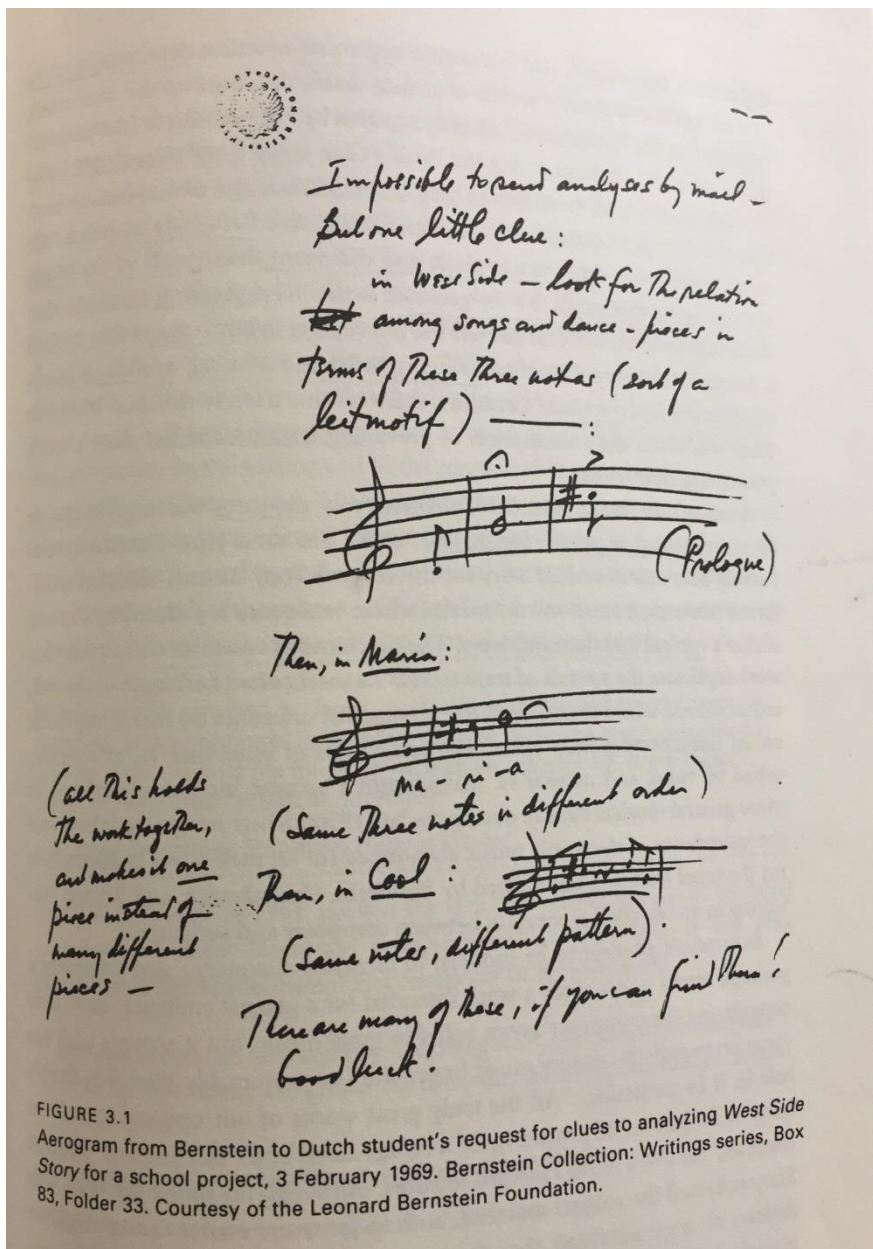 Impossible to send analyses by mail –
But one little clue:
in West Side – look for the relation
among songs and dance-pieces in
terms of these three notes (sort of a
leitmotif) —:
(Prologue)
Then, in Maria:
Ma - ri - a
(Same three notes in different order)
Then, in Cool:
(same notes, different pattern).
(all this holds
the work together,
and makes it one
piece instead of
many different
pieces —
There are many of these, if you can find them!
Good luck!
FIGURE 3.1
Aerogram from Bernstein to Dutch student's request for clues to analyzing West Side
Story for a school project, 3 February 1969. Bernstein Collection: Writings series, Box
83, Folder 33. Courtesy of the Leonard Bernstein Foundation.